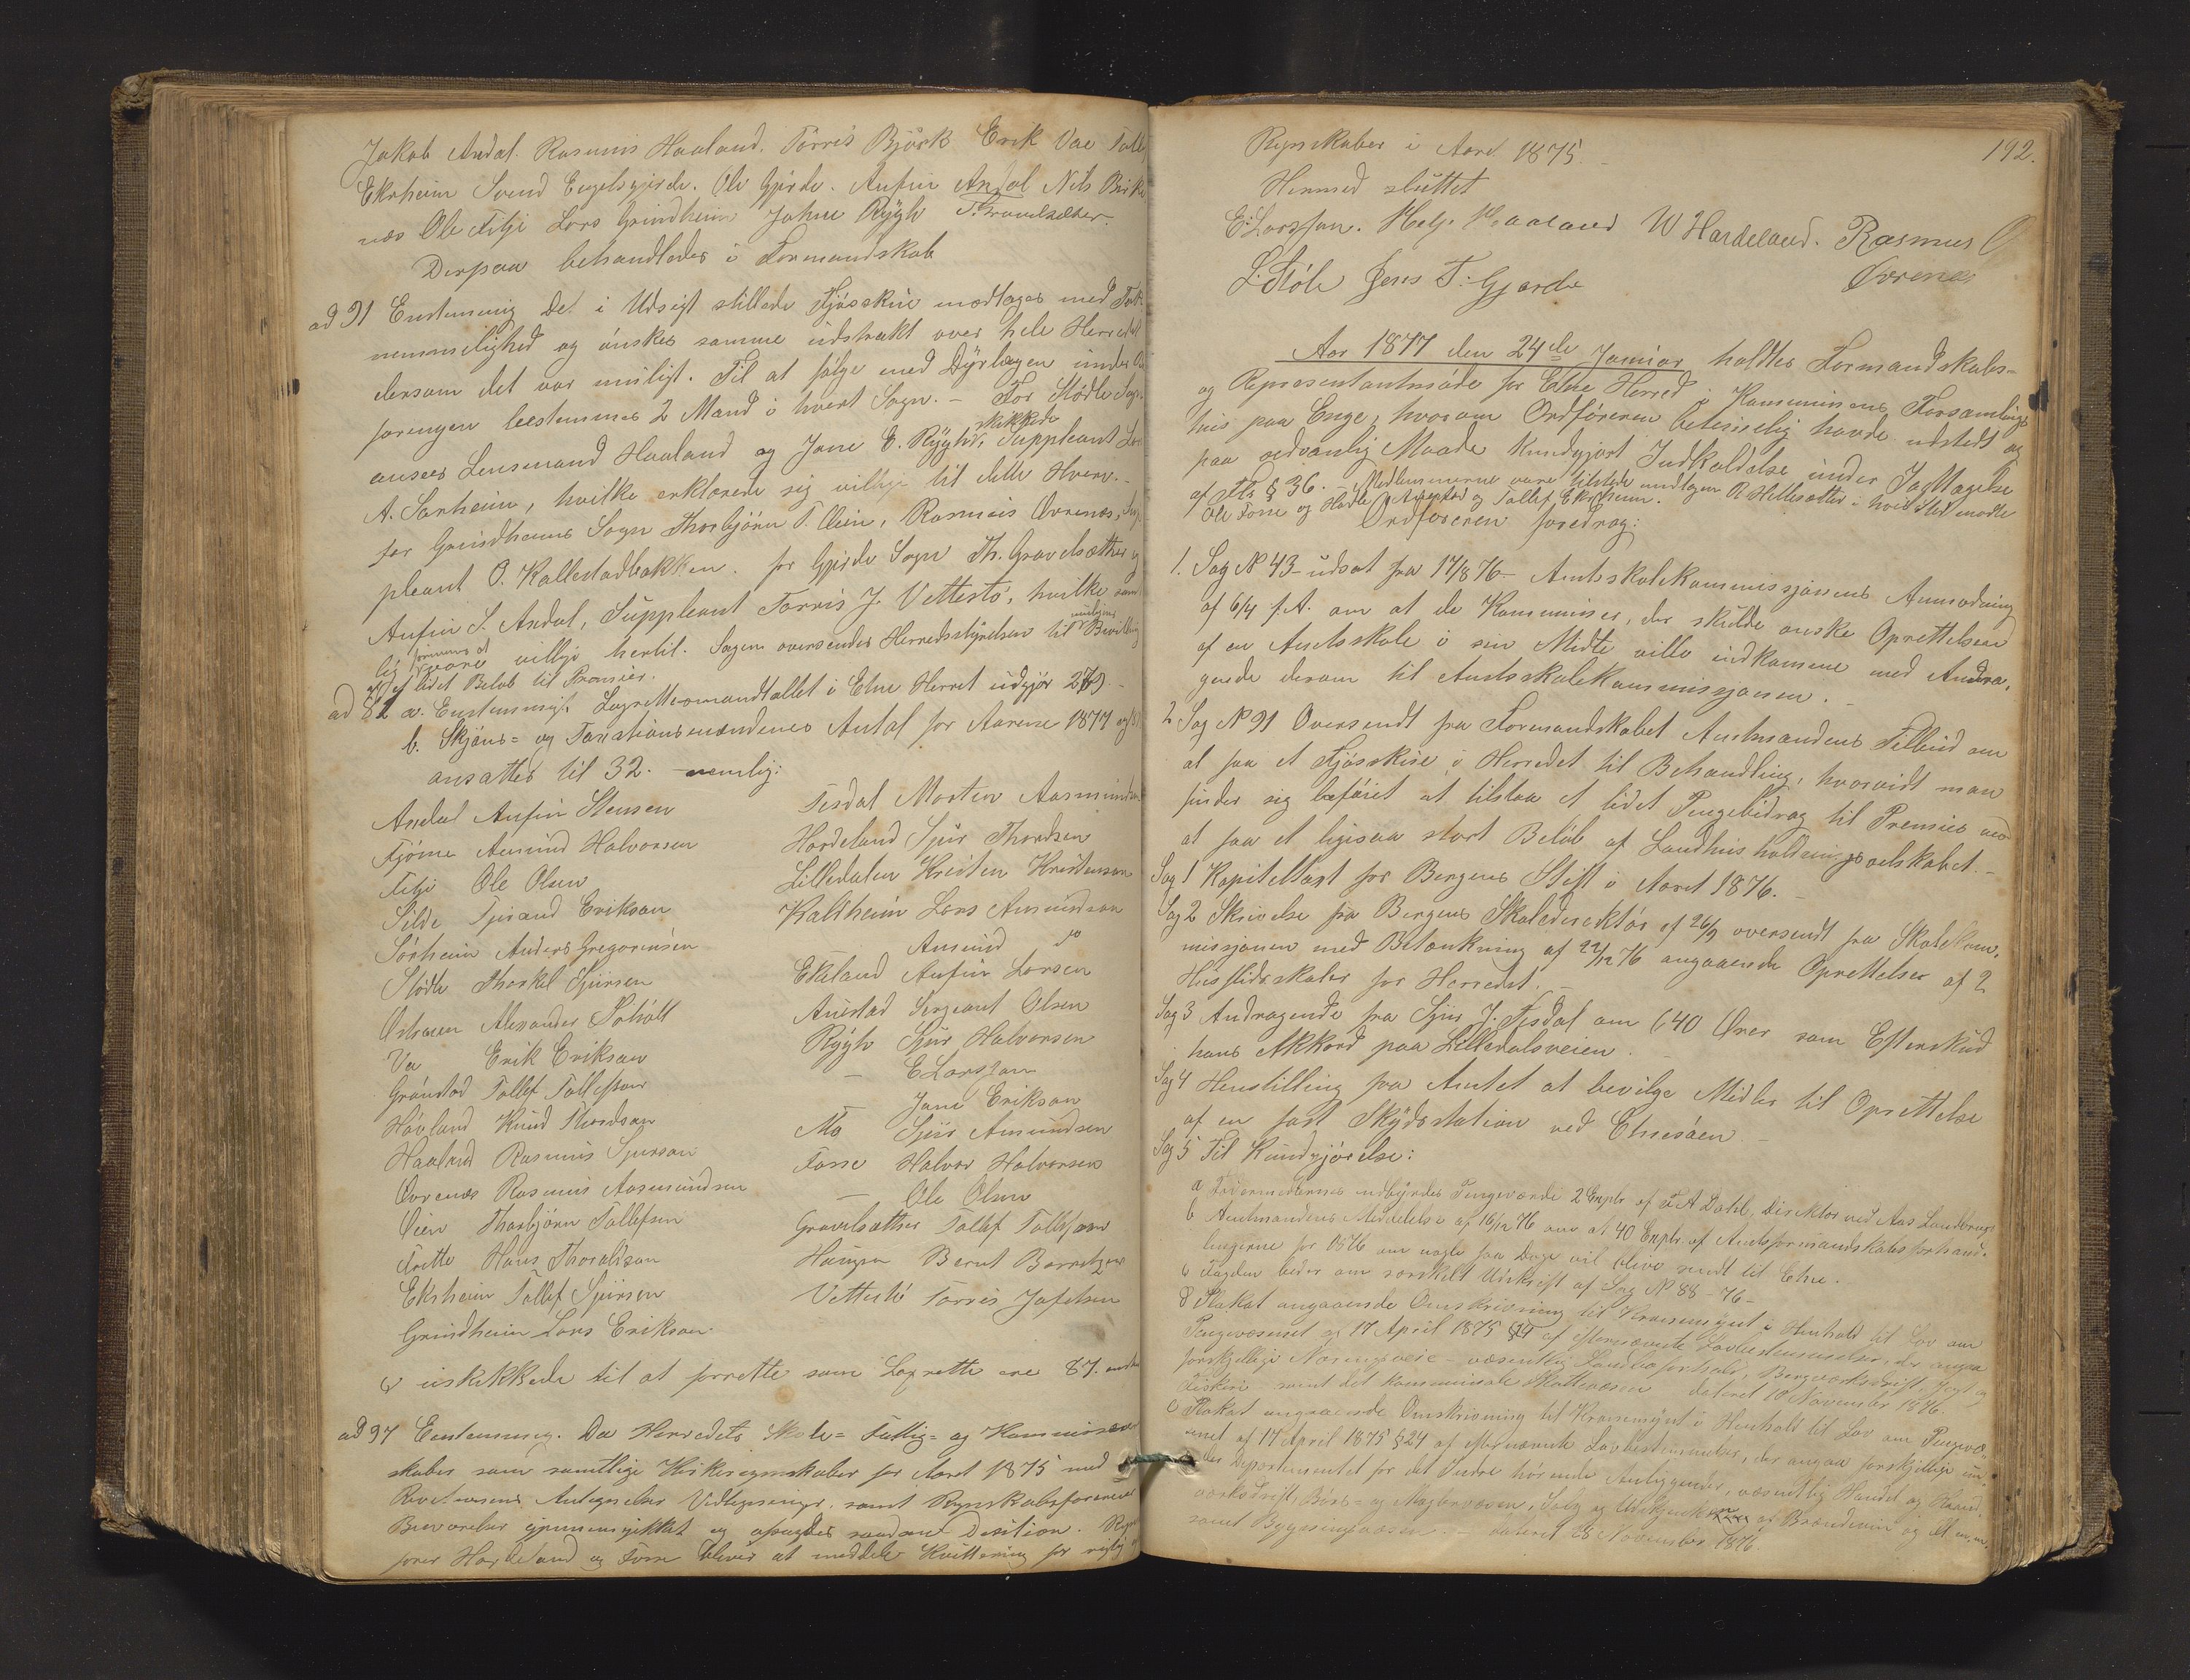 Jakob Andal. Rasmus Haaland. Torris Bjørk Erik Vae
Ekrheim Svend Engelsgjerde. Ole Gjerde. Anfin Andal Nils
nes Ole Fitje Lars Grindheim Johne Rygh T. Gravelsæter
Derpaa behandledes i Formandskab
ad 91 Enstemmig Det i Udsigt stillede Fjøsskue modtages med
nemmelighed og ønskes samme udstrakt over hele Herredet
dersom det var muligt. Til at følge med Dyrlægen under
bestemmes 2 Mand i hvert Sogn. – For Stødle Sogn
ansees Lensmand Haaland og Jone E. Rygh skikkede, Suppleant
A. Sørheim, hvilke erklærede sig villige til dette Hverv. –
for Grindheims Sogn Thorbjørn T. Øien, Rasmus Øvrenæs,
pleant O. Kallestadbakken. for Gjerde Sogn Th. Gravelsæther
Anfin S. Andal, Suppleant Torris J. Vettestø, hvilke
være villige hertil. Sagen oversendes Herredsstyrelsen til
af et lidet Beløb til Præmier.
ad 82 a. Enstemmigt. Lagrettesmandtallet i Etne Herret udgjør
b. Skjøns- og Taxationsmændenes Antal for Aarene 1877 og
ansattes til 32. – nemlig:
Andal Anfin Stensen
Fjøsne Amund Halvorsen
Fitje Ole Olsen
Silde Sjovand Erikson
Sørheim Anders Gregoriusen
Stødle Thorkel Sjursen
Østrem Alexander Schött
Va Erik Erikson
Grønstad Tollef Tollefson
Høvland Knud Thordsen
Haaland Rasmus Sjurson
Øvrenæs Rasmus Aasmundsen
Øien Thorbjørn Tollefsen
Frette Hans Thoraldson
Ekrheim Tollef Sjursen
Grindheim Lars Erikson
Tesdal Morten
Hardeland Sjur Thordsen
Lilledalen Kristen Kristensen
Kaltheim Lars Amundson
Amund do
Ekeland Anfin Larsen
Austad Sergeant Olsen
Rygh Sjur Halvorsen
– E Larsson
– Jone Erikson
Mo Sjur Amundsen
Tosse Halvor Halvorsen
– Ole Olsen
Gravelsæther Tollef Tollefson
Haugen Bernt
Vettestø Torris Jofetsen
c. uskikkede til at forrette som Lagrette ere 87.
ad 97 Enstemmig. Da Herredets Skole- Fattig- og
skaber som samtlige Kirkeregnskaber for Aaret 1875 med
Revisionens Antegnelser samt
Besvarelser gjennemgikket og afsagdes saadan Desition.
fører Hardeland og Tosse bliver at meddele Kvittering for
192.
Regnskaber i Aaret 1875. –
Hermed sluttet
E. Larsson. Helje Haaland W Hardeland. Rasmus
Øvrenes
S. Støle Jens T. Gjerde
Aar 1877 den 24de Januar holdtes Formandskabs-
og Repræsentantmøde for Etne Herred i Kommunens Forsamlings
hus paa Enge, hvorom Ordføreren betimelig havde udstedt og
paa sedvanlig Maade kundgjort Indkaldelse under Iagttagelse
af Fl. § 36. – Medlemmerne vare tilstede undtagen R Hillesætter i hvis Sted mødte
Ole Tosse og Tollef Ekrheim.
Ordføreren foredrog:
1. Sag No 43 – udsat fra 17/8 76 – Amtsskolekommissjonens Anmodning
af 6/4 f.A. om at de Kommuner, der skulde ønske Oprettelsen
af en Amtsskole i sin Midte ville indkomme med Andra,
gende derom til Amtsskolekommissjonen. –
2 Sag No 91 Oversendt fra Formandskabet Amtmandens Tilbud om
at faa et Fjøsskue i Herredet til Behandling, hvorvidt man
finder sig beføiet at tilstaa et lidet Pengebidrag til Premier
at faa et ligesaa stort Beløb af Landhusholdningsselskabet. –
Sag 1 Kapiteltaxt for Bergens Stift i Aaret 1876. –
Sag 2 Skrivelse fra Bergens Skoledirecktør af 26/9 oversendt fra Skolekom,
missjonen med Betænkning af 22/12 76 angaaende Oprettelser af 2
Husflidsskoler for Herredet. –
Sag 3 Andragende fra Sjur J. Tesdal om 640 Ører som Efterskud
hans Akkord paa Lilledalsveien. –
Sag 4 Henstilling fra Amtet at bevilge Midler til Oprettelse
af en fast Skydsstation ved Etnesøen –
Sag 5 Til Kundgjørelse:
a Fodermidlernes indbyrdes Pengeværdi 2 Explr af F A Dahl, Direktør ved Aas Landbrugs
b Amtmandens Meddelelse af 16/12 76 om at 40 Explr. af Amtsformandskabsforhand-
lingerne for 1876 om nogle faa Dage vil blive sendt til Etne. –
c Fogden beder om særskilt Udskrift af Sag No 88 – 76 –
d Plakat angaaende Omskrivning til Kronemynt i Henhold til Lov om
Pengevæsenet af 17 April 1875 §24 af efternævnte Lovbestemmelser, der angaa
forskjellige Næringsveie – væsentlig Bergverksdrift, Jagt og
Fiskeri – samt det kommunale Skattevæsen dateret 10 November 1876.
e Plakat angaaende Omskrivning til Kronemynt i Henhold til Lov om Pengevæ-
senet af 17 April 1875 §24 af efternævnte Lovbestemmelser, der angaa forskjellige un-
der Departementet for det Indre hørende Anliggender, væsentlig Handel og Haand-
værksdrift, Børs- og Mæglervæsen, Salg og Udskjenkning af Brændevin og Øl m.m.
samt Bygningsvæsen. – dateret 28 November 1876.